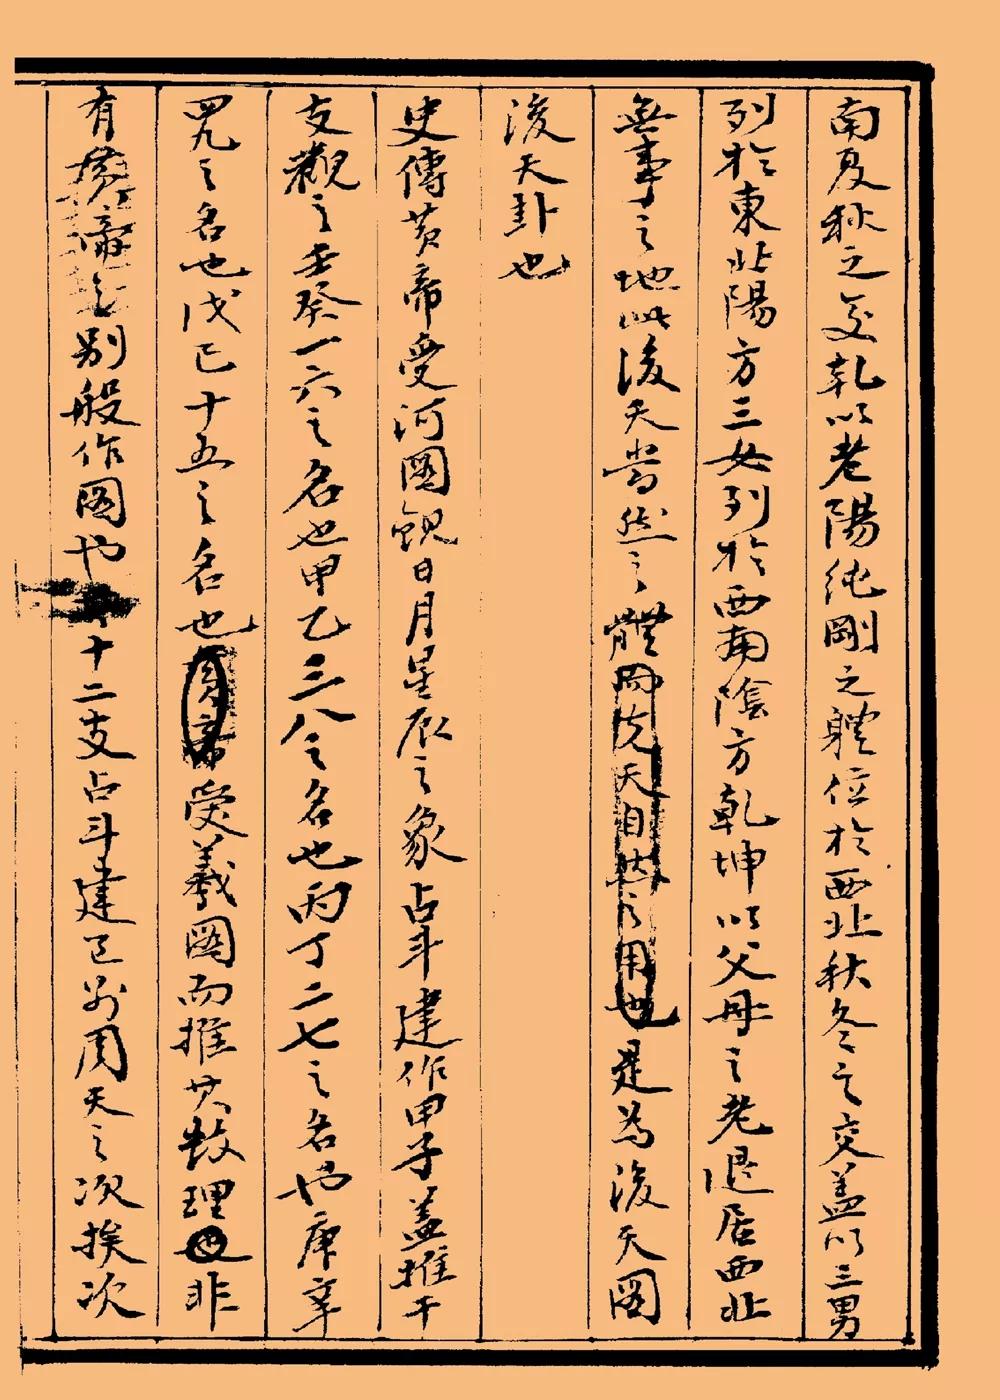 南夏秋之交乾以老陽純剛之軆位於西北秋冬之交蓋以三男
列於東北陽方三女列於西南陰方乾坤以父母之老退居西北
無事之地此後天當然之體同先天自然之用也是為後天圖
後天卦也
史傳黃帝受河圖觀日月星辰之象占斗建作甲子蓋推干
支觀之壬癸一六之名也甲乙三八之名也丙丁二七之名也庚辛
四九之名也戊己十五之名也黃帝受羲圖而推其数理也非
有黃帝之别般作圖也十二支占斗建已别周天之次挨次